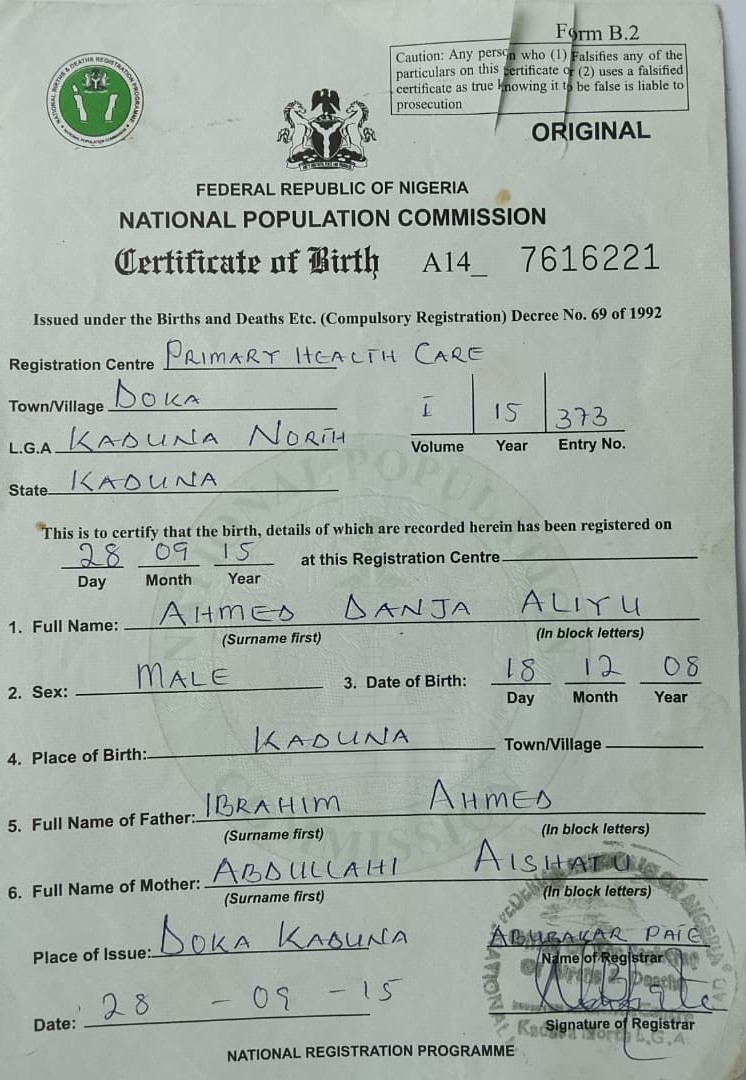 Form B.2
Caution: Any person who (1) Falsifies any of the
particulars on this certificate or (2) uses a falsified
certificate as true knowing it to be false is liable to
prosecution
ORIGINAL
NATIONAL BIRTHS & DEATHS REGISTRATION PROGRAMME
NATIONAL POPULATION COMMISSION
FEDERAL REPUBLIC OF NIGERIA
NATIONAL POPULATION COMMISSION
Certificate of Birth A14_ 7616221
Issued under the Births and Deaths Etc. (Compulsory Registration) Decree No. 69 of 1992
Registration Centre PRIMARY HEALTH CARE
Town/Village DOKA
I 15 373
Volume Year Entry No.
L.G.A KADUNA NORTH
State KADUNA
This is to certify that the birth, details of which are recorded herein has been registered on
28 09 15 at this Registration Centre
Day Month Year
1. Full Name: AHMED DANJA ALIYU
(Surname first) (In block letters)
2. Sex: MALE 3. Date of Birth: 18 12 08
Day Month Year
4. Place of Birth: KADUNA Town/Village
5. Full Name of Father: IBRAHIM AHMED
(Surname first) (In block letters)
6. Full Name of Mother: ABDULLAHI AISHATU
(Surname first) (In block letters)
Place of Issue: DOKA KADUNA
ABUBAKAR
Name of Registrar
Date: 28 - 09 - 15
Signature of Registrar
NATIONAL REGISTRATION PROGRAMME